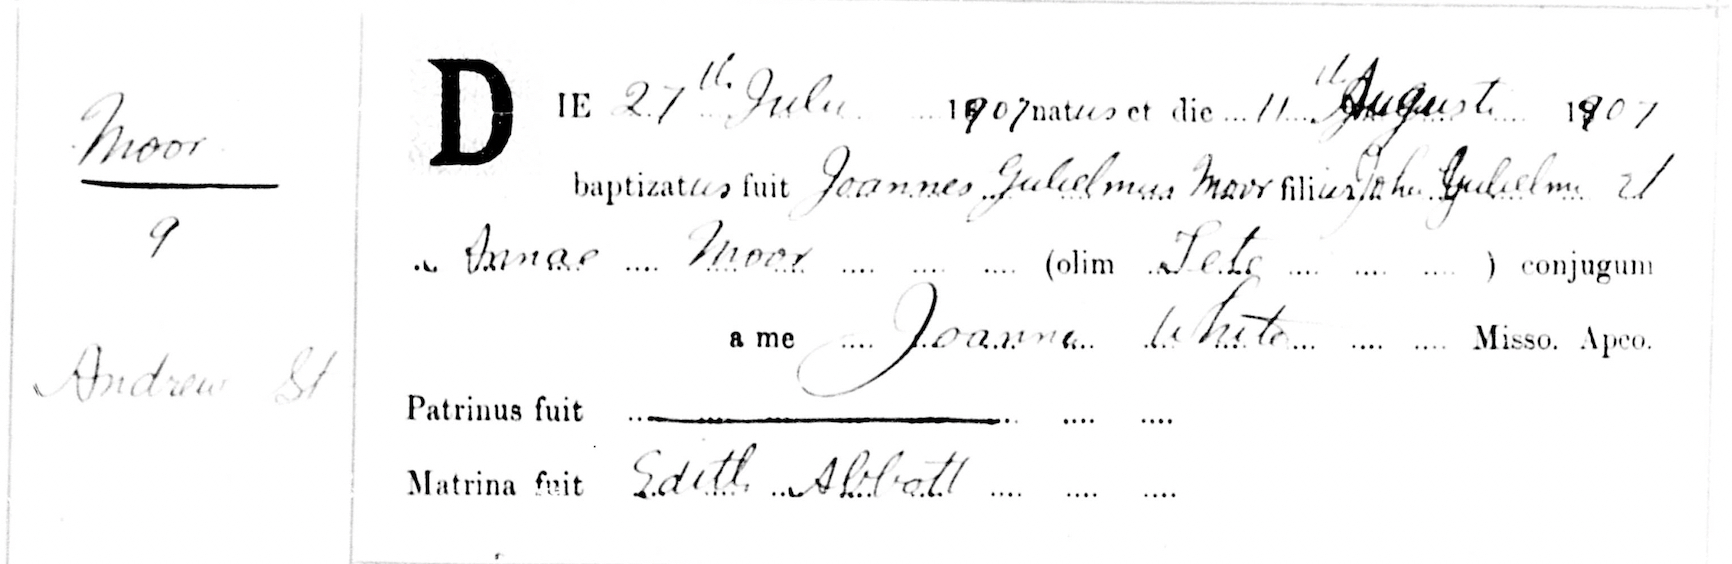 Moor
9
Andrew St
DIE 27th Julii 1907 natus et die 11th Augusti 1907
baptizatus fuit Joannes Gulielmus Moor filius John Gulielmi et
Annae Moor (olim ) conjugum
a me Joanne White Misso. Apco.
Patrinus fuit
Matrina fuit Edith Abbott